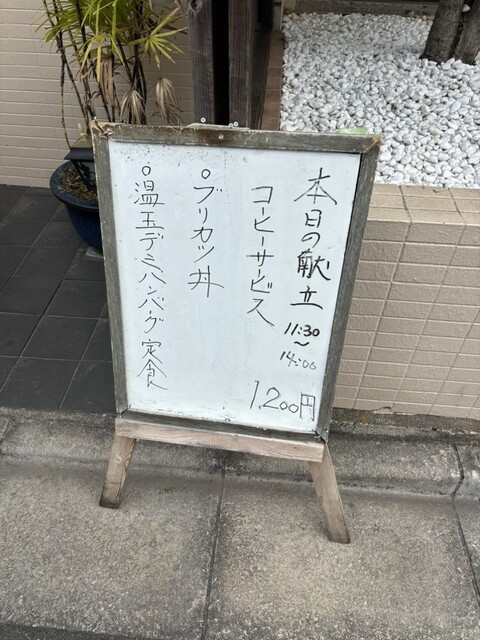 本日の献立
11:30
〜
14:00
コーヒーサービス
1,200円
○ブリカツ丼
○温玉デミハンバーグ定食